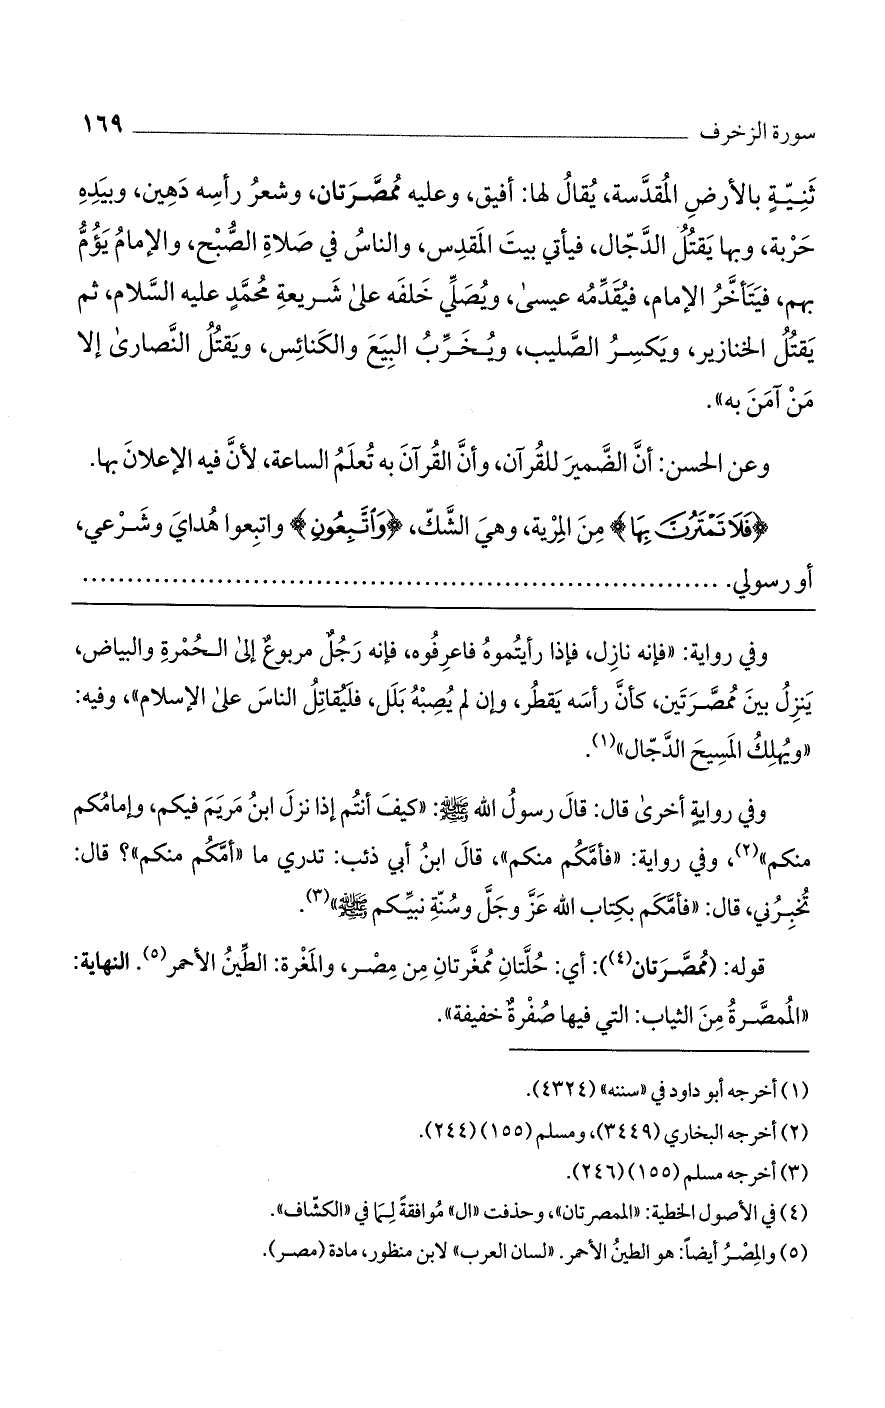 سورة الزخرف ١٦٩
ثَنِيّةٍ بالأرضِ المُقدَّسة، يُقالُ لها: أفيق، وعليه مُمصَّرَتان، وشعرُ رأسِه دَهِين، وبيَدِهِ
حَرْبة، وبها يَقتُلُ الدَّجّال، فيأتي بيتَ المَقدِس، والناسُ في صَلاةِ الصُّبْح، والإمامُ يَؤُمُّ
بهم، فيَتَأخَّرُ الإمام، فيُقَدِّمُه عيسىٰ، ويُصَلِّي خَلفَه علىٰ شَريعةِ مُحمَّدٍ عليه السَّلام، ثم
يَقتُلُ الخنازير، ويَكسِرُ الصَّليب، ويُخَرِّبُ البِيَعَ والكَنائِس، ويَقتُلُ النَّصارىٰ إلا
مَنْ آمَنَ به».
وعن الحسن: أنَّ الضَّميرَ للقُرآن، وأنَّ القُرآنَ به تُعلَمُ الساعة، لأنَّ فيه الإعلانَ بها.
﴿فَلَا تَمْتَرُنَّ بِهَا﴾ مِنَ المِرْية، وهيَ الشَّكّ، ﴿وَٱتَّبِعُونِ﴾ واتبِعوا هُدايَ وشَرْعي،
أو رسولي. ......................................................................
وفي رواية: «فإنه نازِل، فإذا رأيتُموهُ فاعرِفُوه، فإنه رَجُلٌ مربوعٌ إلىٰ الـحُمْرةِ والبياض،
يَنزِلُ بينَ مُمصَّرَتَين، كأنَّ رأسَه يَقطُر، وإن لم يُصِبْهُ بَلَل، فلَيُقاتِلُ الناسَ علىٰ الإسلام»، وفيه:
«ويُهلِكُ المَسِيحَ الدَّجّال»(١).
وفي روايةٍ أخرىٰ قال: قالَ رسولُ الله ﷺ: «كيفَ أنتُم إذا نزلَ ابنُ مَريَمَ فيكم، وإمامُكم
منكم»(٢)، وفي رواية: «فأمَّكُم منكم»، قالَ ابنُ أبي ذئب: تدري ما «أمَّكُم منكم»؟ قال:
تُخبِرُني، قال: «فأمَّكَم بكِتاب الله عَزَّ وجَلَّ وسُنّةِ نبيِّكم ﷺ»(٣).
قوله: (مُمصَّرَتان(٤)): أي: حُلَّتانِ مُمغَّرتانِ مِن مِصْر، والمَغْرة: الطِّينُ الأحمر(٥). النهاية:
«المُمصَّرةُ مِنَ الثياب: التي فيها صُفْرةٌ خفيفة».
(١) أخرجه أبو داود في «سننه» (٤٣٢٤).
(٢) أخرجه البخاري (٣٤٤٩)، ومسلم (١٥٥) (٢٤٤).
(٣) أخرجه مسلم (١٥٥) (٢٤٦).
(٤) في الأصول الخطية: «الممصرتان»، وحذفت «ال» مُوافقةً لِمَا في «الكشّاف».
(٥) والمِصْرُ أيضاً: هو الطينُ الأحمر. «لسان العرب» لابن منظور، مادة (مصر).